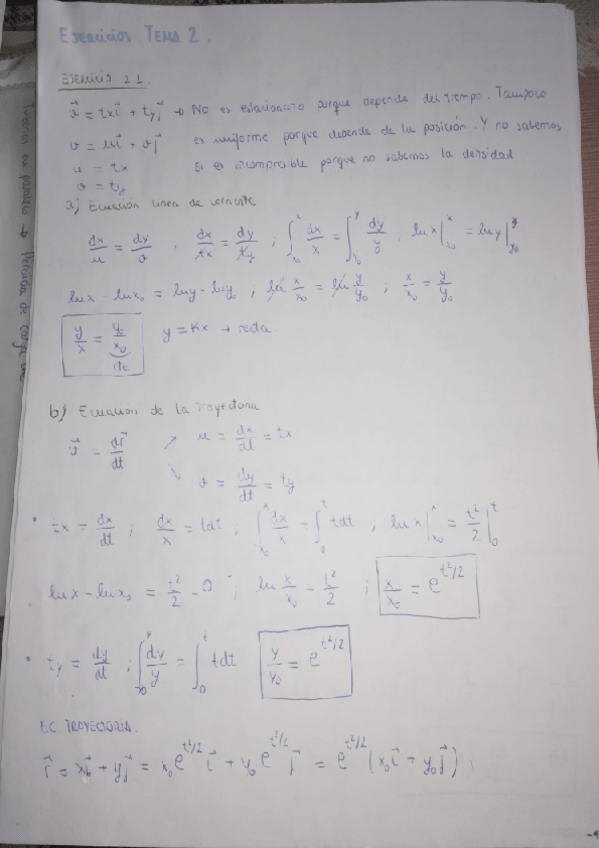 Ejercicios TEMA 2.
EJERCICIO 2.1.
v⃗ = txi⃗ + tyj⃗ → No es estacionario porque depende del tiempo. Tampoco
v = ui⃗ + vj⃗ es uniforme porque depende de la posición. Y no sabemos
u = tx si es incompresible porque no sabemos la densidad
v = ty
a) Ecuación línea de corriente
dx/u = dy/v , dx/tx = dy/ty ; ∫_{x0}^{x} dx/x = ∫_{y0}^{y} dy/y , ln x |_{x0}^{x} = ln y |_{y0}^{y}
ln x - ln x0 = ln y - ln y0 ; ln x/x0 = ln y/y0 ; x/x0 = y/y0
y/x = y0/x0 y = Kx → recta
cte
b) Ecuación de la Trayectoria
v⃗ = dr⃗/dt ↗ u = dx/dt = tx
↘ v = dy/dt = ty
• tx = dx/dt ; dx/x = tdt ; ∫_{x0}^{x} dx/x = ∫_{0}^{t} tdt ; ln x |_{x0}^{x} = t²/2 |_{0}^{t}
ln x - ln x0 = t²/2 - 0 ; ln x/x0 = t²/2 ; x/x0 = e^{t²/2}
• ty = dy/dt ; ∫_{y0}^{y} dy/y = ∫_{0}^{t} tdt y/y0 = e^{t²/2}
EC. TRAYECTORIA.
r⃗ = xi⃗ + yj⃗ = x0 e^{t²/2} i⃗ + y0 e^{t²/2} j⃗ = e^{t²/2} (x0 i⃗ + y0 j⃗)